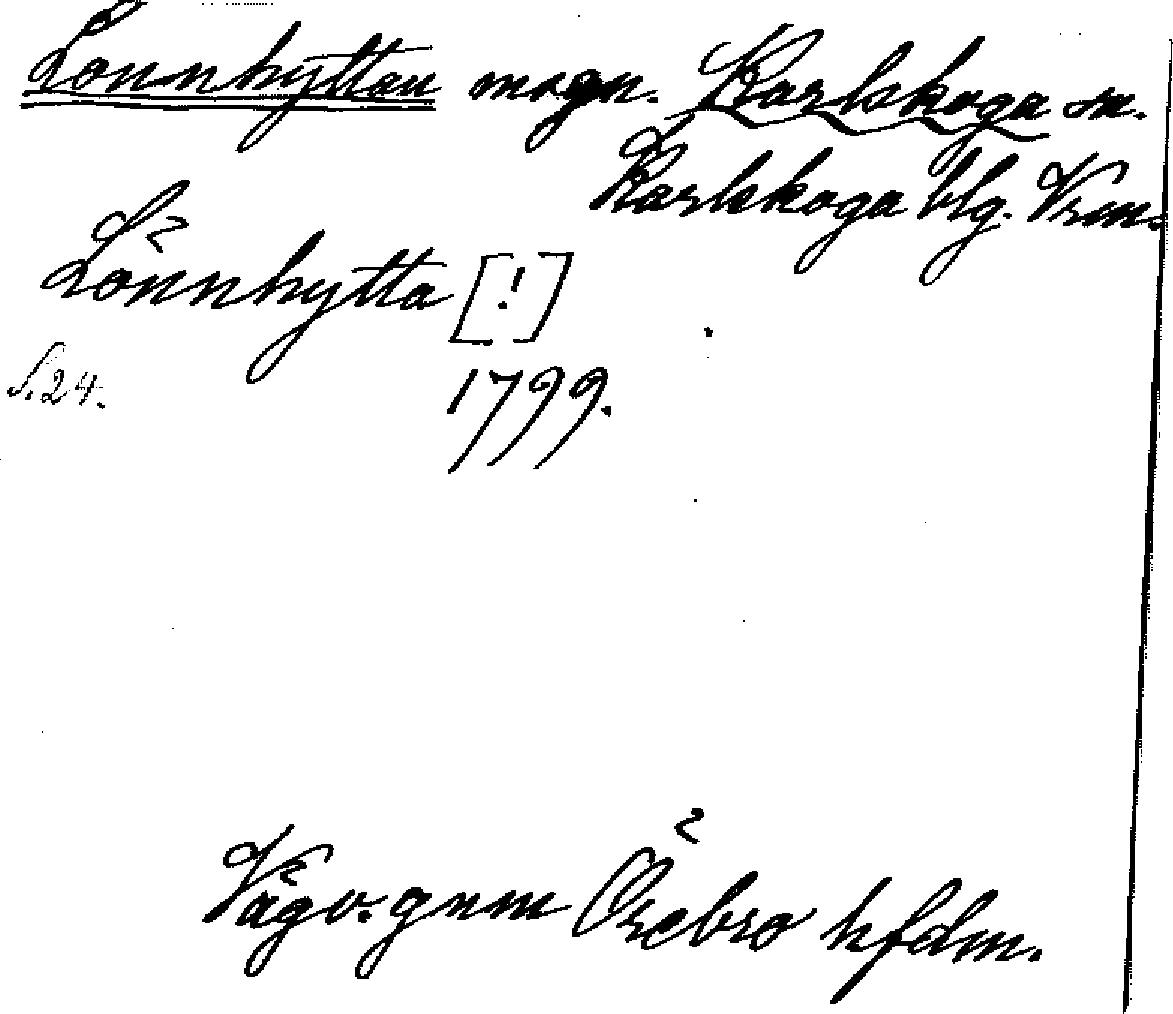 Lönnhyttan magn. Karlskoga sn.
Karlskoga blg. Vrm.
Lönnhytta [!]
S. 24.
1799.
Vägv. gnm Örebro hfdm.